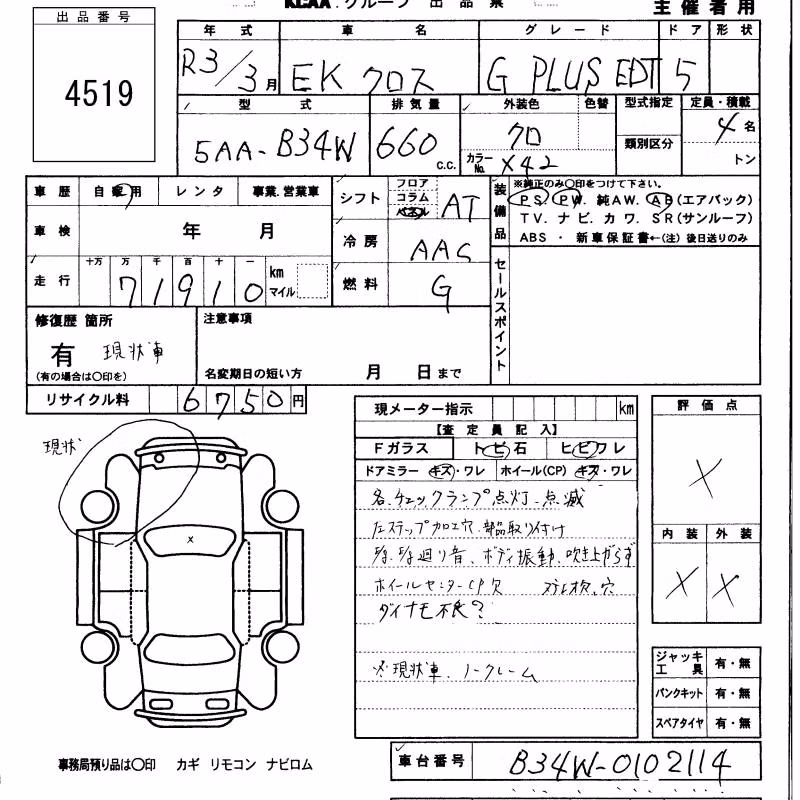 KCAA グループ 出品票
主催者用
出品番号
4519
年式 車名 グレード ドア 形状
R3/3月 EKクロス G PLUS EDT 5
型式 排気量 外装色 色替 型式指定 定員・積載
5AA-B34W 660 c.c. クロ カラーNo. X42 類別区分 4名
トン
車歴 自家用 レンタ 事業.営業車
車検 年 月
走行 十万 万 千 百 十 一 km マイル
71910
シフト フロア コラム パネル AT
冷房 AAC
燃料 G
装備品 ※純正のみ○印をつけて下さい。
PS PW 純AW. AB (エアバック)
TV. ナビ. カワ. SR(サンルーフ)
ABS ・ 新車保証書←(注) 後日送りのみ
セールスポイント
修復歴 箇所
有 現状車
(有の場合は○印を)
注意事項
名変期日の短い方 月 日まで
リサイクル料 6750円
現メーター指示 km
【査定員記入】
Fガラス トビ石 ヒビワレ
ドアミラー キズ・ワレ ホイール(CP) キズ・ワレ
各.チェックランプ点灯.点滅
左ステップ加工穴.部品取り付け
廻り音、ボディ振動、吹き上がらず
ホイールセンターCP欠 穴
ダイナモ不良?
※現状車.ノークレーム
評価点
X
内装 外装
X X
ジャッキ工具 有・無
パンクキット 有・無
スペアタイヤ 有・無
現状
x
事務局預り品は○印 カギ リモコン ナビロム
車台番号 B34W-0102114